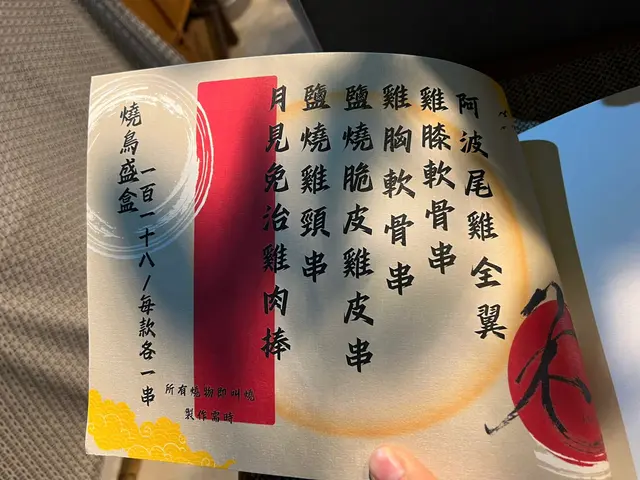 阿波尾雞全翼
雞膝軟骨串
雞胸軟骨串
鹽燒脆皮雞皮串
鹽燒雞頸串
月見免治雞肉棒
燒鳥盛盒
一百一十八/每款各一串
所有燒物即叫燒
製作需時